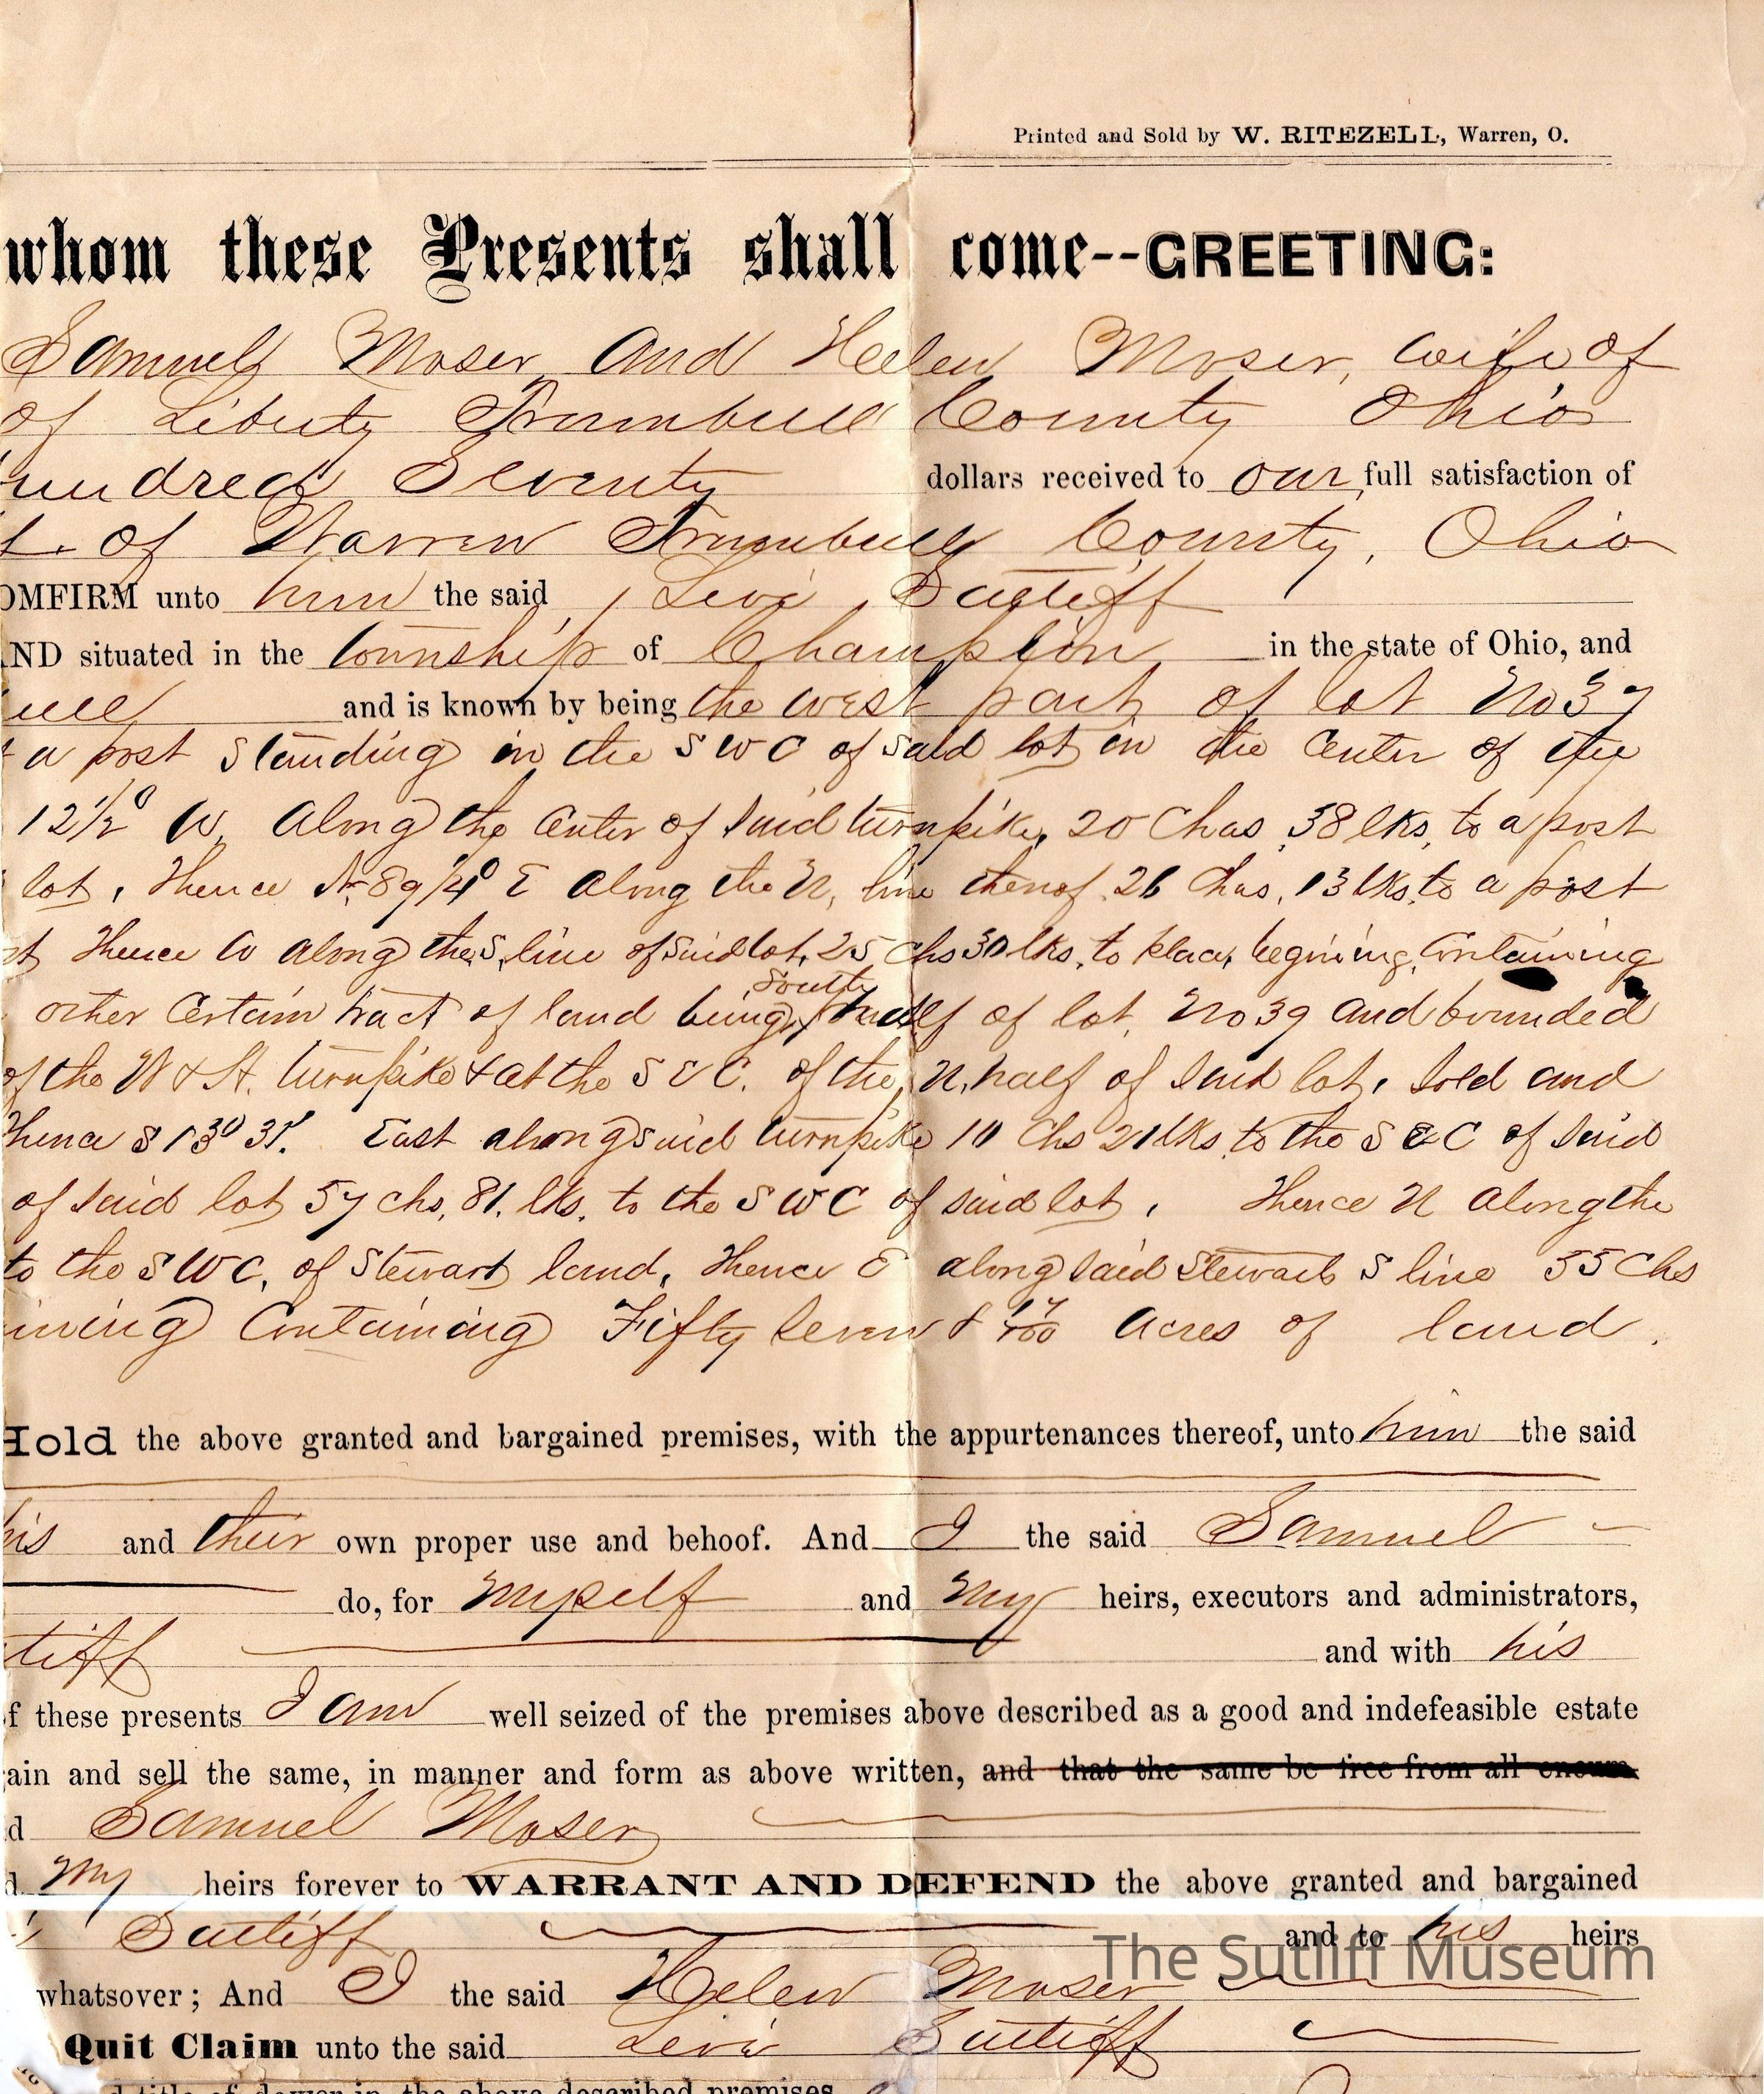 Printed and Sold by W. RITEZELL, Warren, O.
whom these Presents shall come--GREETING:
Samuel Moser and Helen Moser, wife of
of Liberty Trumbull County Ohio
undred Seventy dollars received to our full satisfaction of
of Warren Trumbull County, Ohio
OMFIRM unto him the said Levi Sutliff
AND situated in the township of Champion in the state of Ohio, and
and is known by being the west part of lot No 37
a post standing in the S W C of said lot in the center of the
12½° W, along the center of said turnpike, 20 Chas, 38 lks, to a post
lot, Thence N. 89¼° E along the N, line thereof 26 Chas, 13 lks, to a post
Thence W along the S, line of said lot, 25 Chs 30 lks, to place begining, Containing
other Certain tract of land being South half of lot, No 39 and bounded
of the W & A. turnpike & at the S E C. of the N, half of said lot, sold and
Thence S 13° 31'. East along said turnpike 10 Chs 21 lks to the S E C of said
of said lot 57 chs, 81, lks, to the S W C of said lot, Thence N along the
to the S W C, of Stewart land, Thence E along said Stewarts S line 55 Chs
ining Containing Fifty Seven & 17/100 acres of land.
Hold the above granted and bargained premises, with the appurtenances thereof, unto him the said
his and their own proper use and behoof. And I the said Samuel
do, for myself and my heirs, executors and administrators,
tliff and with his
of these presents I am well seized of the premises above described as a good and indefeasible estate
ain and sell the same, in manner and form as above written, and that the same be free from all encum
d Samuel Moser
d my heirs forever to WARRANT AND DEFEND the above granted and bargained
Sutliff and to his heirs
The Sutliff Museum
whatsover; And I the said Helen Moser
Quit Claim unto the said Levi Sutliff
d title of dower in the above described premises